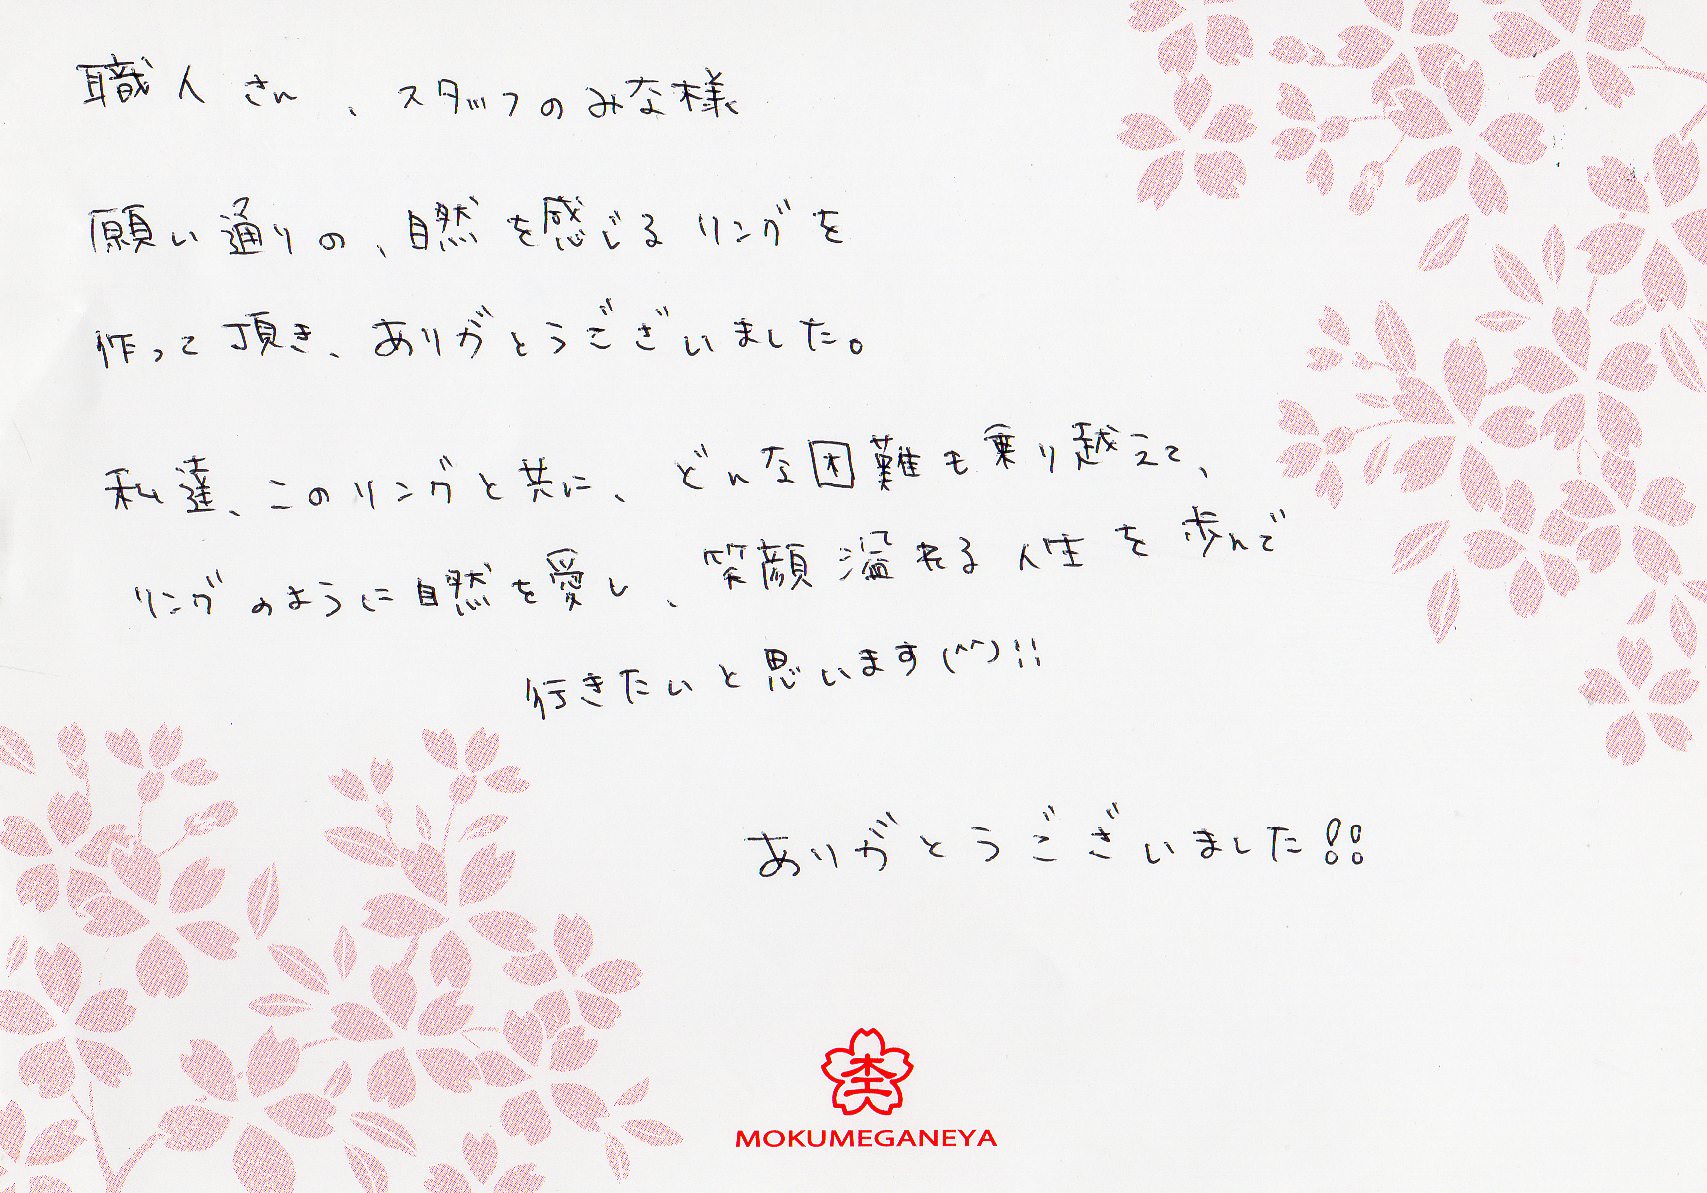 職人さん、スタッフのみな様
願い通りの、自然を感じるリングを
作って頂き、ありがとうございました。
私達、このリングと共に、どんな困難も乗り越えて、
リングのように自然を愛し、笑顔溢れる人生を歩んで
行きたいと思います(^^)!!
ありがとうございました!!
杢
MOKUMEGANEYA